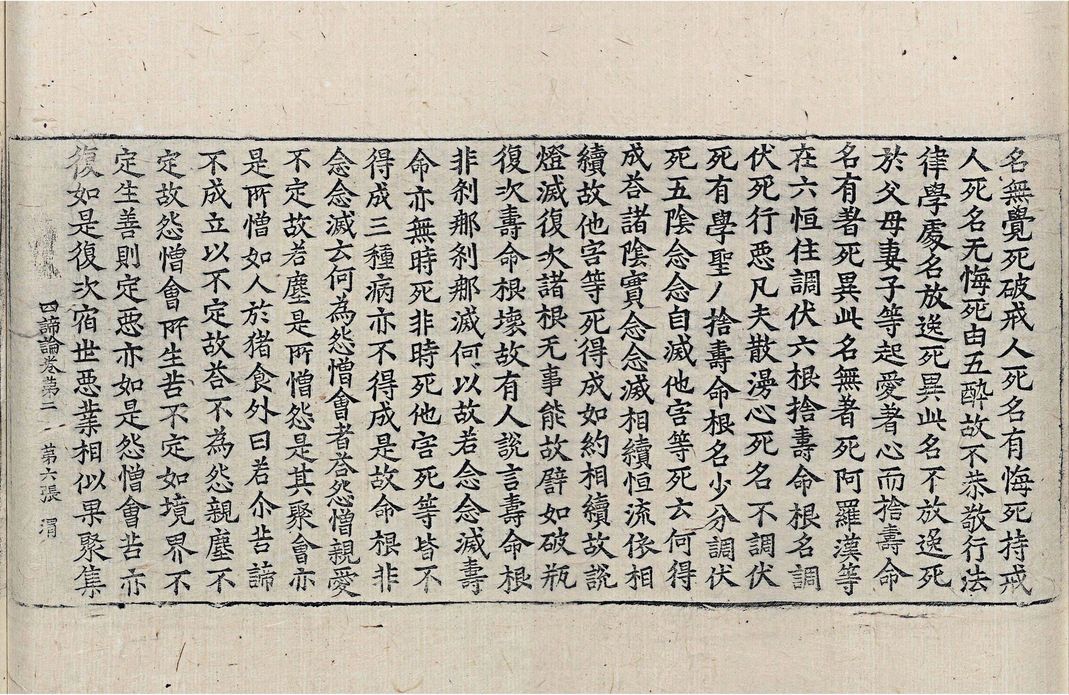 名無覺死破戒人死名有悔死持戒
人死名无悔死由五酔故不恭敬行法
律學處名放逸死異此名不放逸死
於父母妻子等起愛著心而捨壽命
名有著死異此名無著死阿羅漢等
在六恒住調伏六根捨壽命根名調
伏死行惡凡夫散漫心死名不調伏
死有學聖人捨壽命根名少分調伏
死五陰念念自滅他害等死云何得
成荅諸陰實念念滅相續恒流依相
續故他害等死得成如約相續故說
燈滅復次諸根无事能故譬如破瓶
復次壽命根壞故有人說言壽命根
非剎那剎那滅何以故若念念滅壽
命亦無時死非時死他害死等皆不
得成三種病亦不得成是故命根非
念念滅云何為怨憎會者荅怨憎親愛
不定故若塵是所憎怨是其聚會亦
是所憎如人於猪食外曰若尒苦諦
不成立以不定故荅不為怨親塵不
定故怨憎會所生苦不定如境界不
定生善則定惡亦如是怨憎會苦亦
復如是復次宿世惡業相似果聚集
四諦論卷第二 第六張 渭